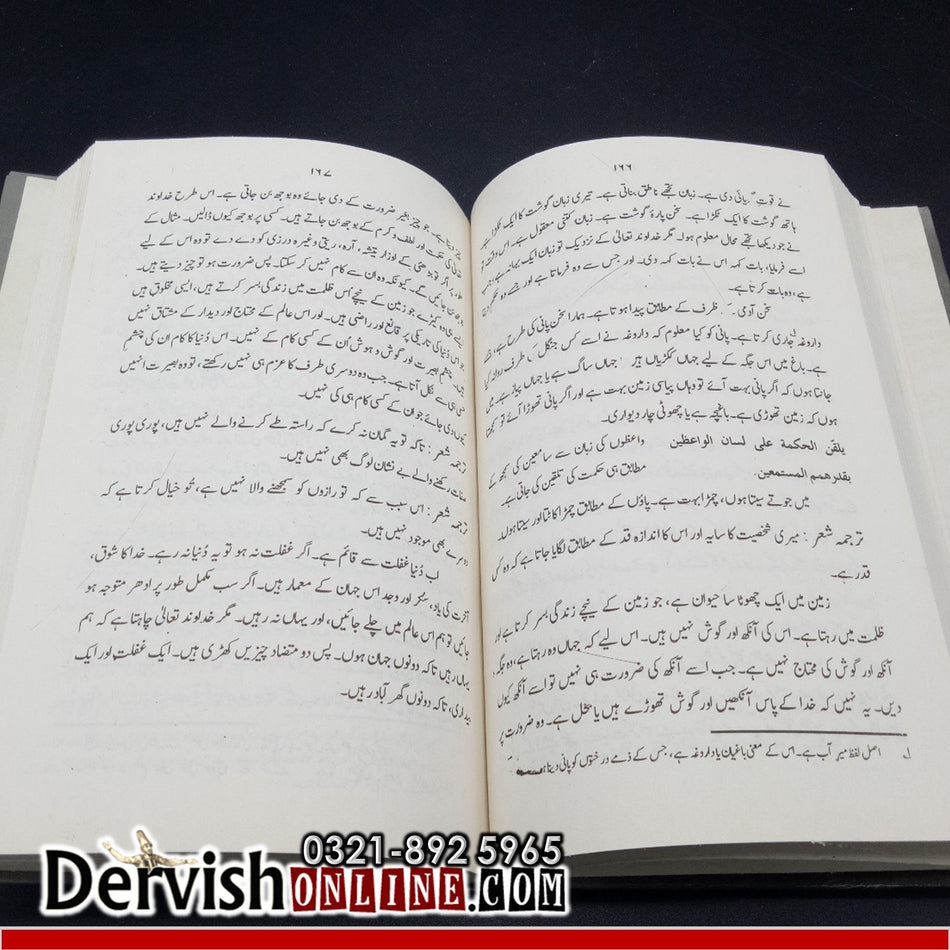 ۱۶۶
نے قوتِ گویائی دی ہے۔ زبان تجھے ناطق بناتی ہے۔ تیری زبان گوشت کا ایک ٹکڑا ہے
ہاتھ گوشت کا ایک ٹکڑا ہے۔ سخن پارۂ گوشت ہے۔ زبان کتنی معقول ہے۔ اس وقت
نے جو دیکھا تجھے محال معلوم ہوا۔ مگر خداوند تعالیٰ کے نزدیک تو زبان ایک بہانہ ہے، جب
اسے فرمایا، بات کہہ اس نے بات کہہ دی۔ اور جس سے وہ فرماتا ہے اور جسے وہ حکم دیتا
ہے، وہ بات کرتا ہے۔
سخن آدمی کے ظرف کے مطابق پیدا ہوتا ہے۔ ہمارا سخن پانی کی طرح ہے، جسے
داروغہ جاری کرتا ہے۔ پانی کو کیا معلوم کہ داروغہ نے اسے کس جنگل کی طرف روانہ کیا
ہے۔ باغ میں اس جگہ کے لیے جہاں ککڑیاں ہیں یا جہاں ساگ ہے یا جہاں پیاز ہے۔ میں
جانتا ہوں کہ اگر پانی بہت آئے تو وہاں پیاسی زمین بہت ہے اور اگر پانی تھوڑا آئے تو سمجھتا
ہوں کہ زمین تھوڑی ہے۔ باغیچہ ہے یا چھوٹی چار دیواری۔
یلقن الحکمة علی لسان الواعظین واعظوں کی زبان سے سامعین کی سمجھ کے
بقدر ھمم المستمعین۔ مطابق ہی حکمت کی تلقین کی جاتی ہے۔
میں جوتے سیتا ہوں، چمڑا بہت ہے۔ پاؤں کے مطابق چمڑا کاٹتا اور سیتا ہوں۔
ترجمہ شعر : میری شخصیت کا سایہ اور اس کا اندازہ قد کے مطابق لگایا جاتا ہے کہ وہ کس
قدر ہے۔
زمین میں ایک چھوٹا سا حیوان ہے، جو زمین کے نیچے زندگی بسر کرتا ہے اور
ظلمت میں رہتا ہے۔ اس کی آنکھ اور گوش نہیں ہیں۔ اس لیے کہ جہاں وہ رہتا ہے، وہ جگہ
آنکھ اور گوش کی محتاج نہیں ہے۔ جب اسے آنکھ کی ضرورت ہی نہیں تو اسے آنکھ کیوں
دیں۔ یہ نہیں کہ خدا کے پاس آنکھیں اور گوش تھوڑے ہیں یا بخل ہے۔ وہ ضرورت پر
اصل لفظ میر آب ہے۔ اس کے معنی باغبان یا داروغہ ہے، جس کے ذمے درختوں کو پانی دینا ہے
۱۶۷
چیز دیتا ہے۔ جو چیز بغیر ضرورت کے دی جائے وہ بوجھ بن جاتی ہے۔ اس طرح خداوند
تعالیٰ کی حکمت اور لطف و کرم کے بوجھ بن جاتے ہیں۔ کسی پر بوجھ کیوں ڈالیں۔ مثال کے
طور پر اگر تو بڑھئی کے اوزار تیشہ، آرہ، ریتی وغیرہ درزی کو دے دے تو وہ اس کے لیے
بوجھ بن جائیں گے۔ کیونکہ وہ ان سے کام نہیں کر سکتا۔ پس ضرورت ہو تو چیز دیتے ہیں۔
کیڑے جو زمین کے نیچے اس ظلمت میں زندگی بسر کرتے ہیں، ایسی مخلوق ہیں
جو اس دنیا کی تاریکی پر قانع اور راضی ہیں۔ اور اس عالم کے محتاج اور دیدار کے مشتاق نہیں
ہیں۔ چشمِ بصیرت اور گوش و ہوش اُن کے کسی کام کے نہیں۔ اس دُنیا کا کام ان کی چشمِ
سے نکل آتا ہے۔ جب وہ دوسری طرف کا عزم ہی نہیں رکھتے، تو وہ بصیرت انہیں
کیوں دی جائے جو ان کے کسی کام ہی کی نہیں۔
ترجمہ شعر : تاکہ تو یہ گمان نہ کرے کہ راستہ طے کرنے والے نہیں ہیں، پوری پوری
صفات رکھنے والے بے نشان لوگ بھی نہیں ہیں۔
ترجمہ شعر : اس سبب سے کہ تو رازوں کو سمجھنے والا نہیں ہے، تُو خیال کرتا ہے کہ
دوسرے بھی موجود نہیں ہیں۔
اب دُنیا غفلت سے قائم ہے۔ اگر غفلت نہ ہو تو یہ دُنیا نہ رہے۔ خدا کا شوق،
آخرت کی یاد، سُکر اور وجد اس جہان کے معمار ہیں۔ اگر سب مکمل طور پر ادھر متوجہ ہو
جائیں تو ہم اس عالم میں چلے جائیں، اور یہاں نہ رہیں۔ مگر خداوند تعالیٰ چاہتا ہے کہ ہم
یہاں رہیں تاکہ دونوں جہان ہوں۔ پس دو متضاد چیزیں کھڑی ہیں۔ ایک غفلت اور ایک
بیداری، تاکہ دونوں گھر آباد رہیں۔
0321-892 5965
DervishONLINE.COM